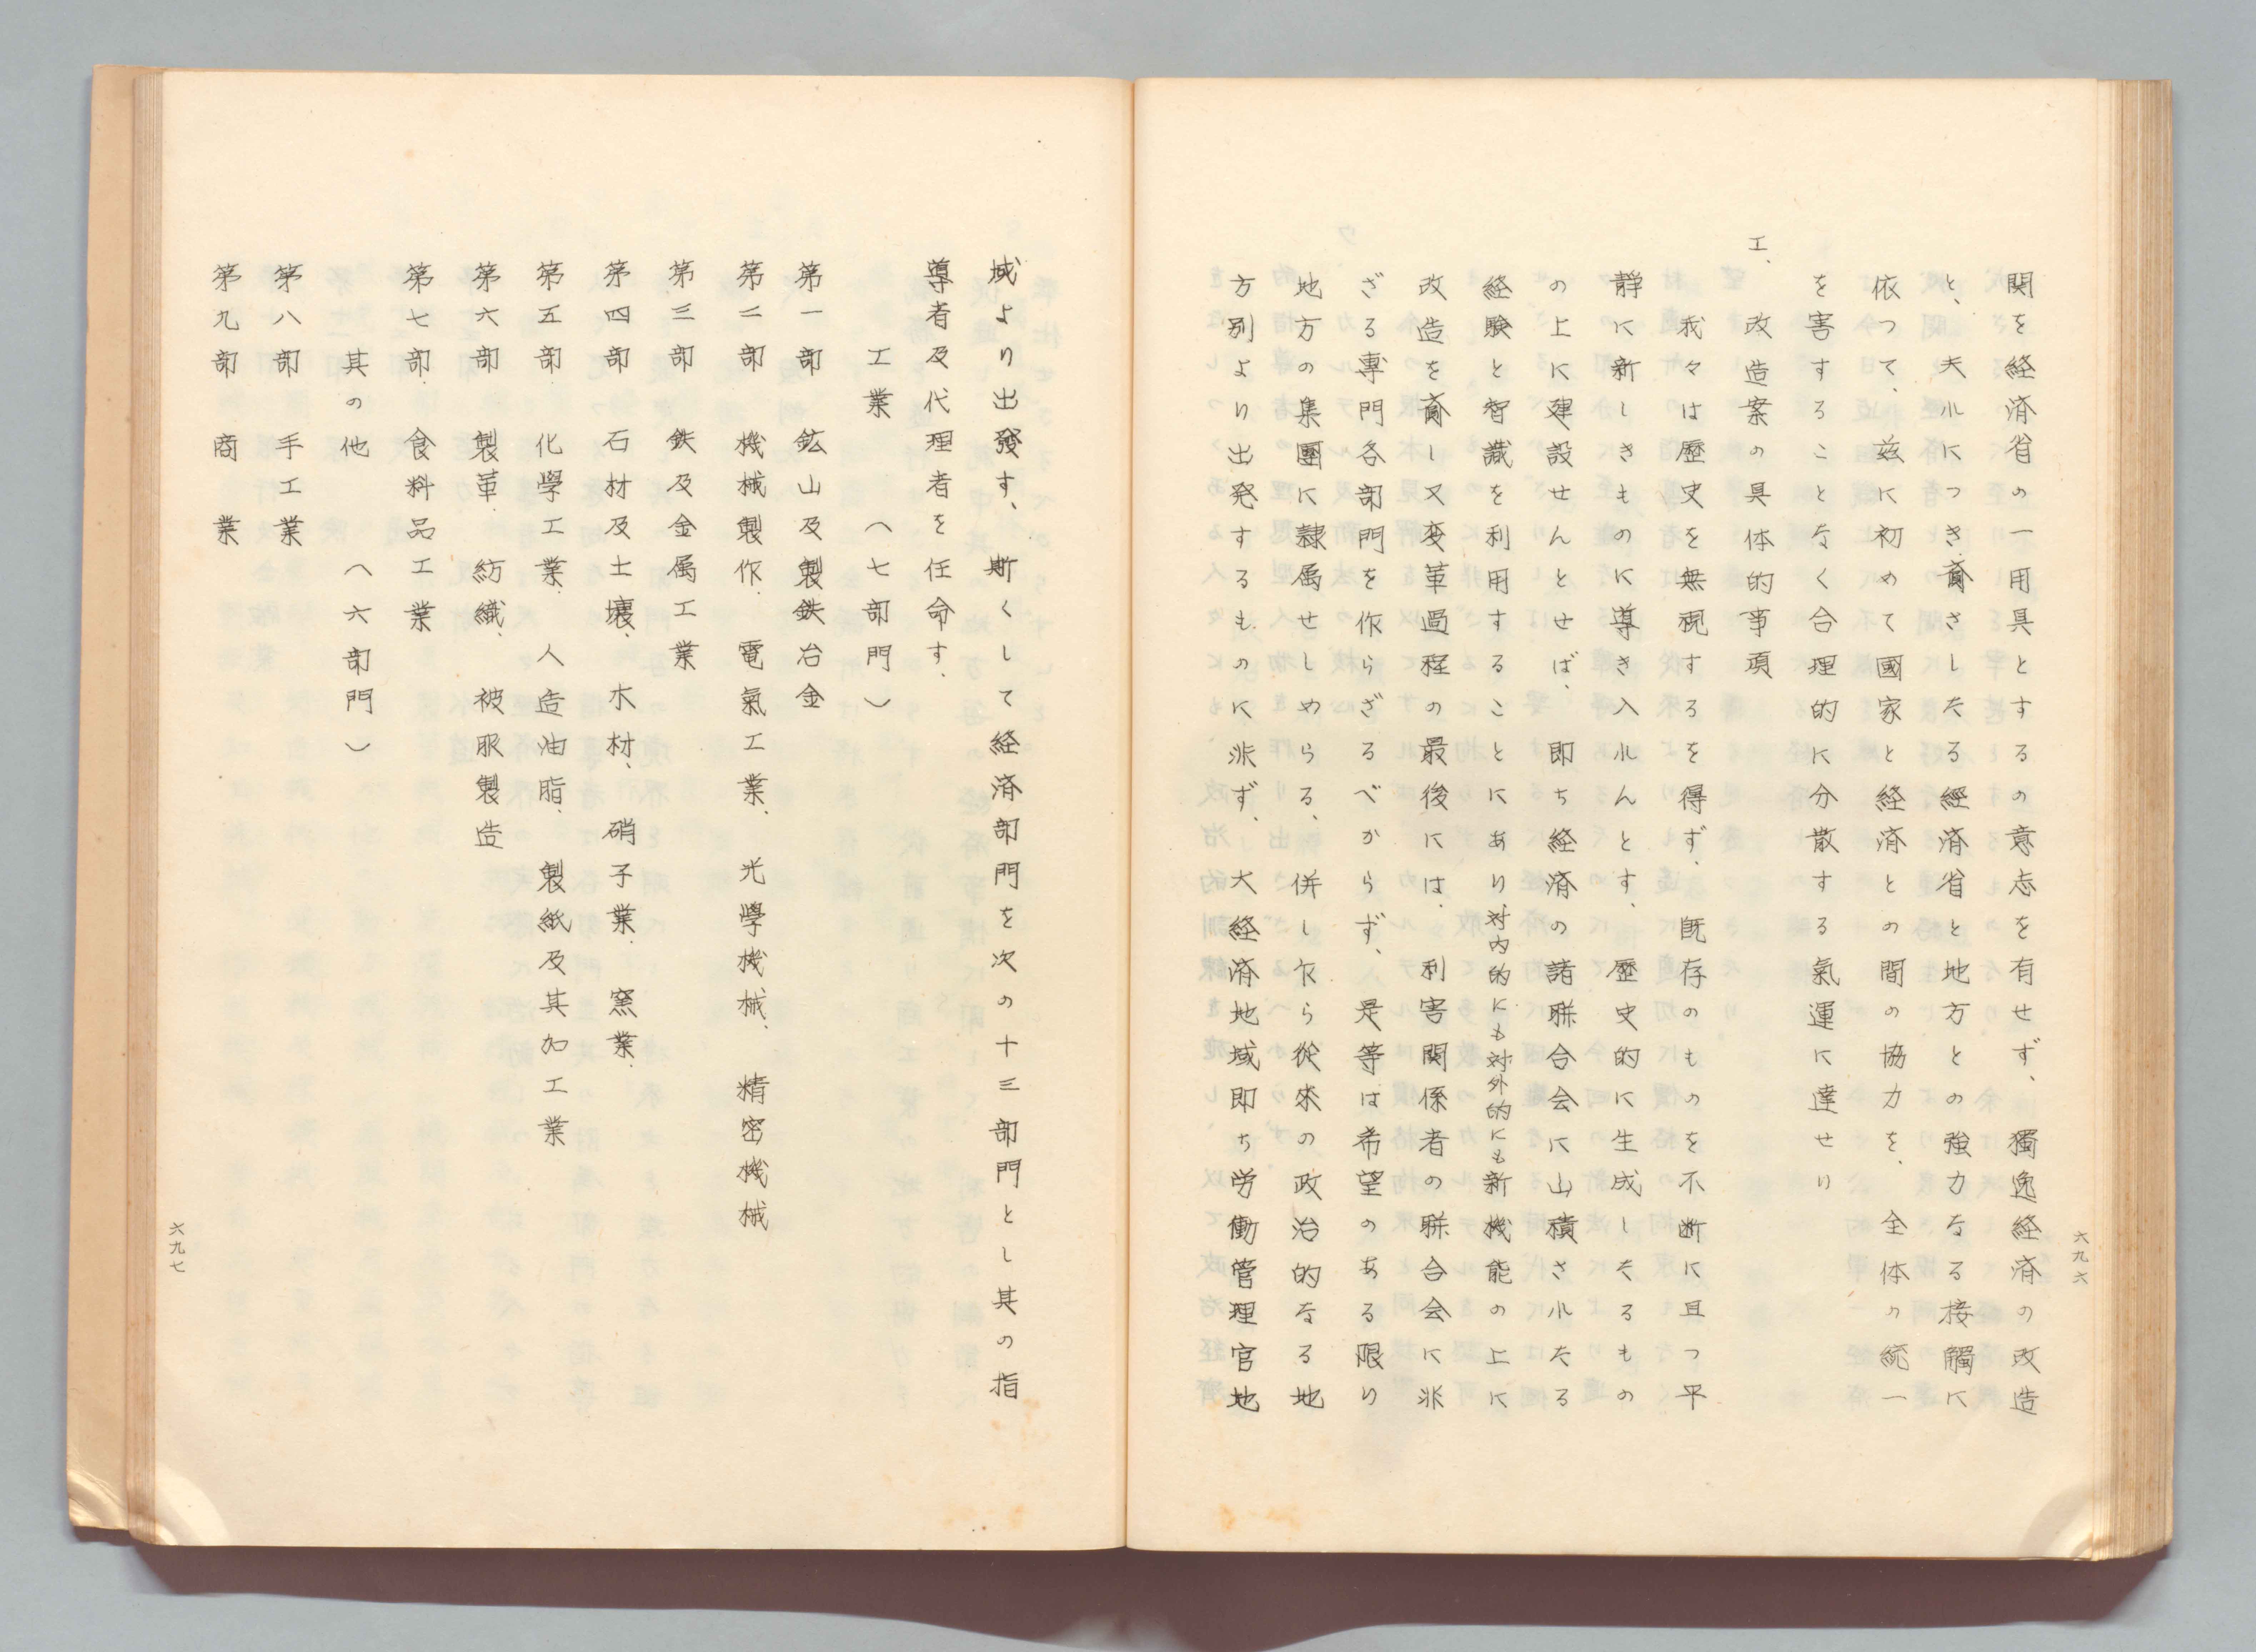 六九六
関を経済省の一用具とするの意志を有せず、獨逸経済の改造
と、夫れにつき齎さしたる經済省と地方との強力なる接觸に
依つて、玆に初めて國家と経済との間の協力を、全体の統一
を害することなく合理的に分散する氣運に達せり
エ、改造案の具体的事項
我々は歴史を無視するを得ず、既存のものを不断に且つ平
静に新しきものに導き入れんとす、歴史的に生成したるもの
の上に建設せんとせば、即ち経済の諸聯合会に山積されたる
経験と智識を利用することにあり、対内的にも対外的にも新機能の上に
改造を齎し又変革過程の最後には、利害関係者の聯合会に非
ざる專門各部門を作らざるべからず、是等は希望のある限り
地方の集團に隷属せしめらる、併し乍ら從來の政治的なる地
方別より出発するものに非ず、大経済地域即ち労働管理官地
域より出發す、斯くして経済部門を次の十三部門とし其の指
導者及代理者を任命す、
工業　（七部門）
第一部　鉱山及製鉄冶金
第二部　機械製作、電氣工業、光學機械、精密機械
第三部　鉄及金属工業
第四部　石材及土壌、木材、硝子業、窯業、
第五部　化學工業、人造油脂、製紙及其加工業
第六部　製革、紡織、被服製造
第七部　食料品工業
其の他　（六部門）
第八部　手工業
第九部　商業
六九七